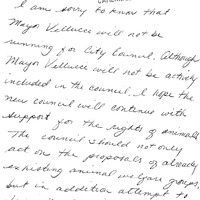 I am sorry to know that
Mayor Vellucci will not be
running for City Council. Although
Mayor Vellucci will not be actively
included in the council, I hope the
new council will continue with
support for the rights of animals.
The council should not only
act on the proposals of already
existing animal welfare groups,
but in addition attempt to